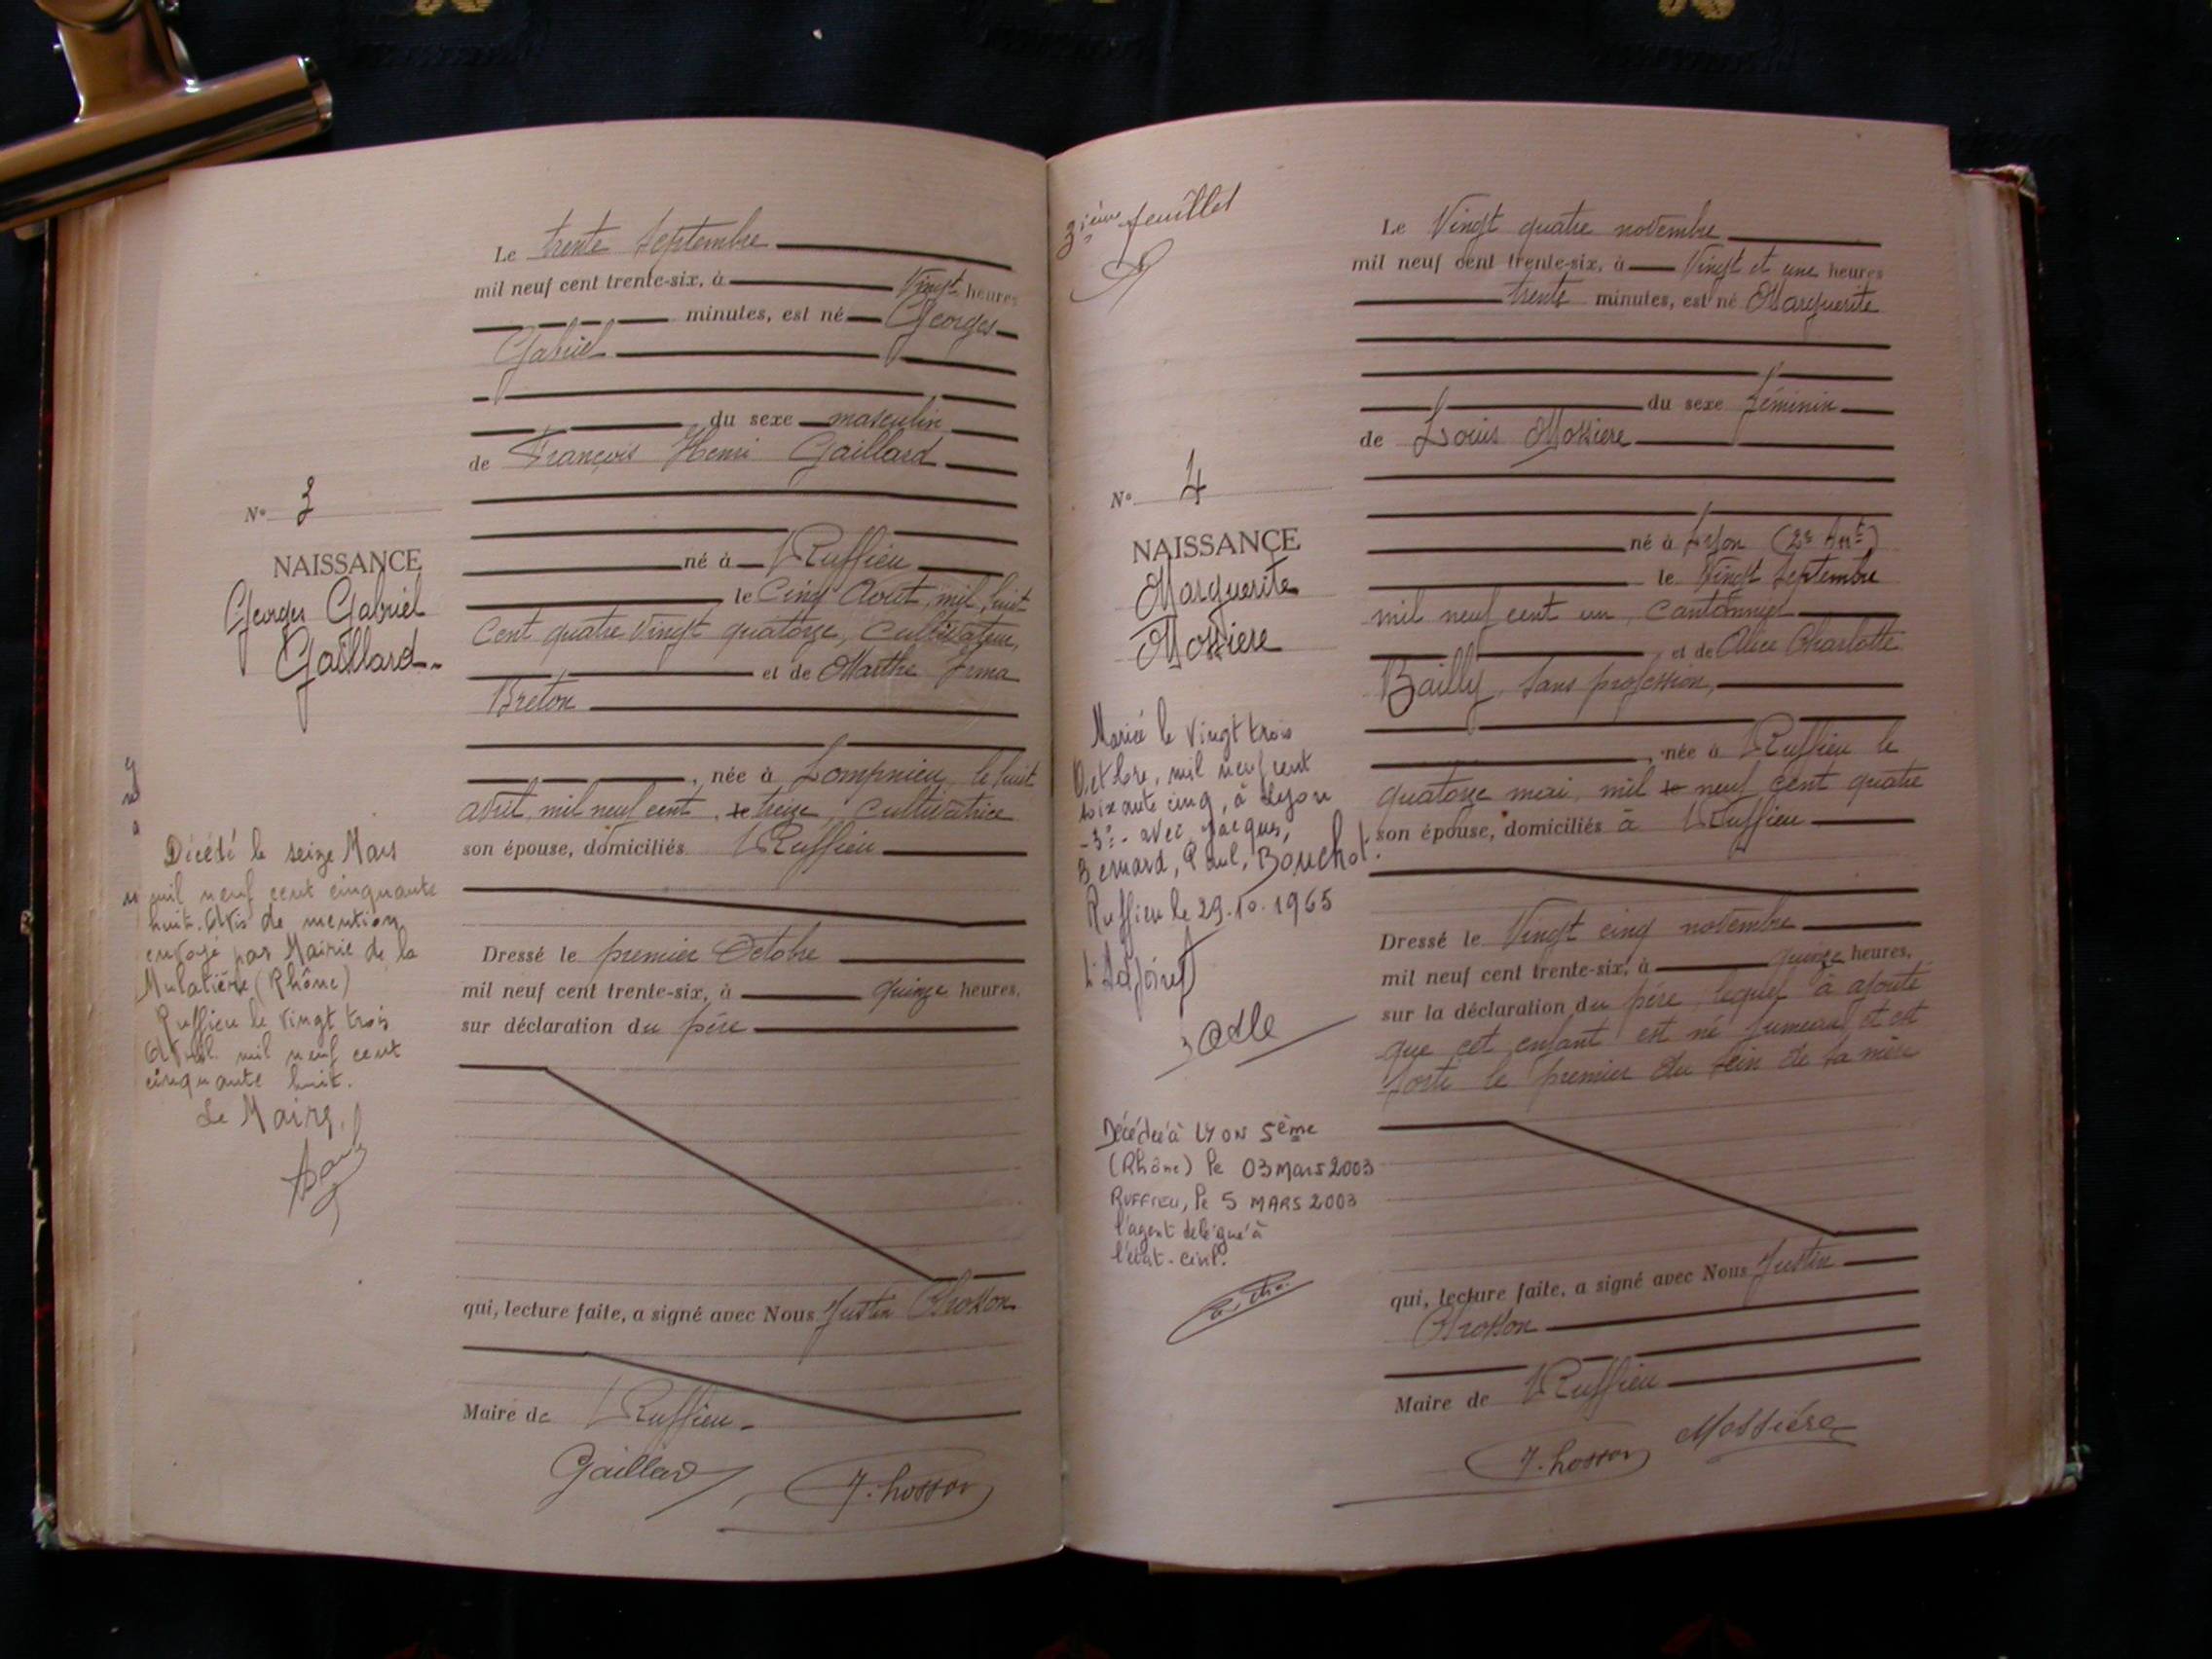 Le trente Septembre
mil neuf cent trente-six, à Vingt heures
minutes, est né Georges
Gabriel
du sexe masculin
de François Henri Gaillard
N° 3
NAISSANCE
Georges Gabriel
Gaillard
né à Ruffieu
le Cinq Août mil huit
Cent quatre vingt quatorze, Cultivateur,
et de Marthe Irma
Breton
, née à Lompnieu, le huit
avril, mil neuf cent treize, Cultivatrice
son épouse, domiciliés Ruffieu
Décédé le seize Mars
mil neuf cent cinquante
huit. Avis de mention
envoyé par Mairie de la
Mulatière (Rhône)
Ruffieu le vingt trois
Avril mil neuf cent
cinquante huit.
Le Maire,
Dressé le premier Octobre
mil neuf cent trente-six, à quinze heures,
sur déclaration du père
qui, lecture faite, a signé avec Nous Justin
Maire de Ruffieu
Gaillard
3ième feuillet
Le Vingt quatre novembre
mil neuf cent trente-six, à Vingt et une heures
trente minutes, est né Marguerite
du sexe féminin
de Louis Mossiere
N° 4
NAISSANCE
Marguerite
Mossiere
né à Lyon (2e Arrt)
le Vingt Septembre
mil neuf cent un, Cantonnier
et de Alice Charlotte
Bailly, sans profession,
, née à Ruffieu le
quatorze mai, mil neuf cent quatre
son épouse, domiciliés à Ruffieu
Marié le Vingt trois
Octobre, mil neuf cent
soixante cinq, à Lyon
-3e- avec Jacques,
Bernard, Paul, Bouchot.
Ruffieu le 29.10.1965
L'Adjoint
Décédée à LYON 5ème
(Rhône) le 03 Mars 2003
RUFFIEU, le 5 MARS 2003
l'agent délégué à
l'état-civil.
Dressé le Vingt cinq novembre
mil neuf cent trente-six, à quinze heures,
sur la déclaration du père, lequel à ajouté
que cet enfant est né jumeau et est
sorti le premier du sein de sa mère
qui, lecture faite, a signé avec Nous Justin
Maire de Ruffieu
Mossière